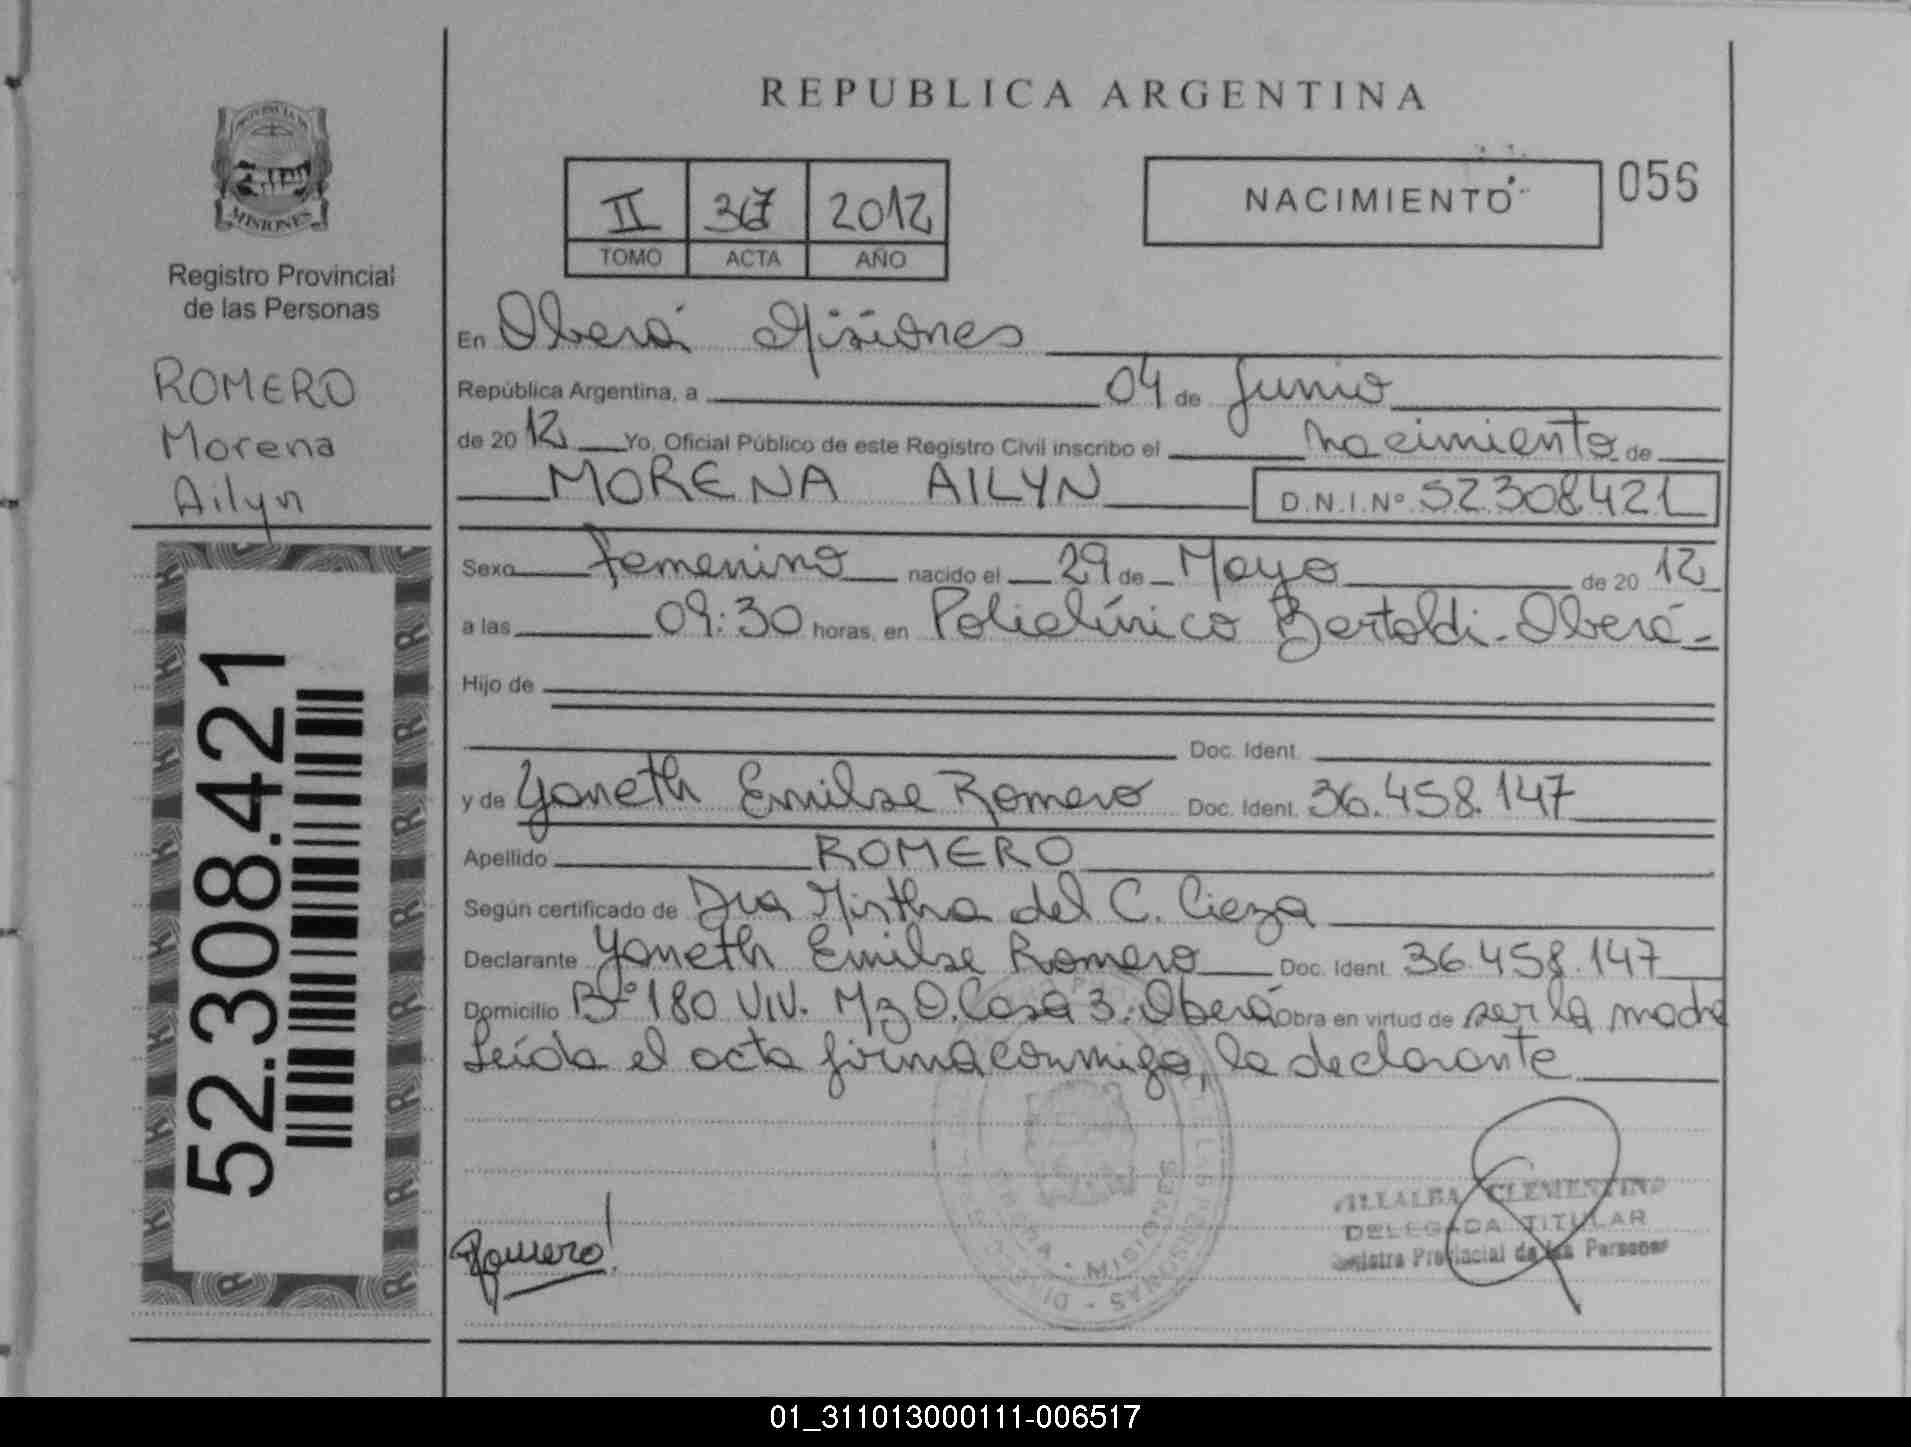 REPUBLICA ARGENTINA
PROVINCIA DE
MISIONES
Registro Provincial
de las Personas
ROMERO
Morena
Ailyn
52.308.421
II 367 2012
TOMO ACTA AÑO
NACIMIENTO
056
En Oberá Misiones
República Argentina, a 04 de Junio
de 2012 Yo, Oficial Público de este Registro Civil inscribo el nacimiento de
MORENA AILYN D.N.I.Nº 52.308.421
Sexo femenino nacido el 29 de Mayo de 2012
a las 09:30 horas, en Policlínico Bertoldi - Oberá -
Hijo de
Doc. Ident.
y de Yaneth Emilse Romero Doc. Ident. 36.458.147
Apellido ROMERO
Según certificado de Dra Mirtha del C. Cieza
Declarante Yaneth Emilse Romero Doc. Ident. 36.458.147
Domicilio Bº 180 VIV. Mz O. Casa 3. Oberá Obra en virtud de ser la madre
Leída el acta firma conmigo, la declarante
Romero
VILLALBA CLEMENTINA
DELEGADA TITULAR
Registro Provincial de las Personas
MISIONES
01_311013000111-006517